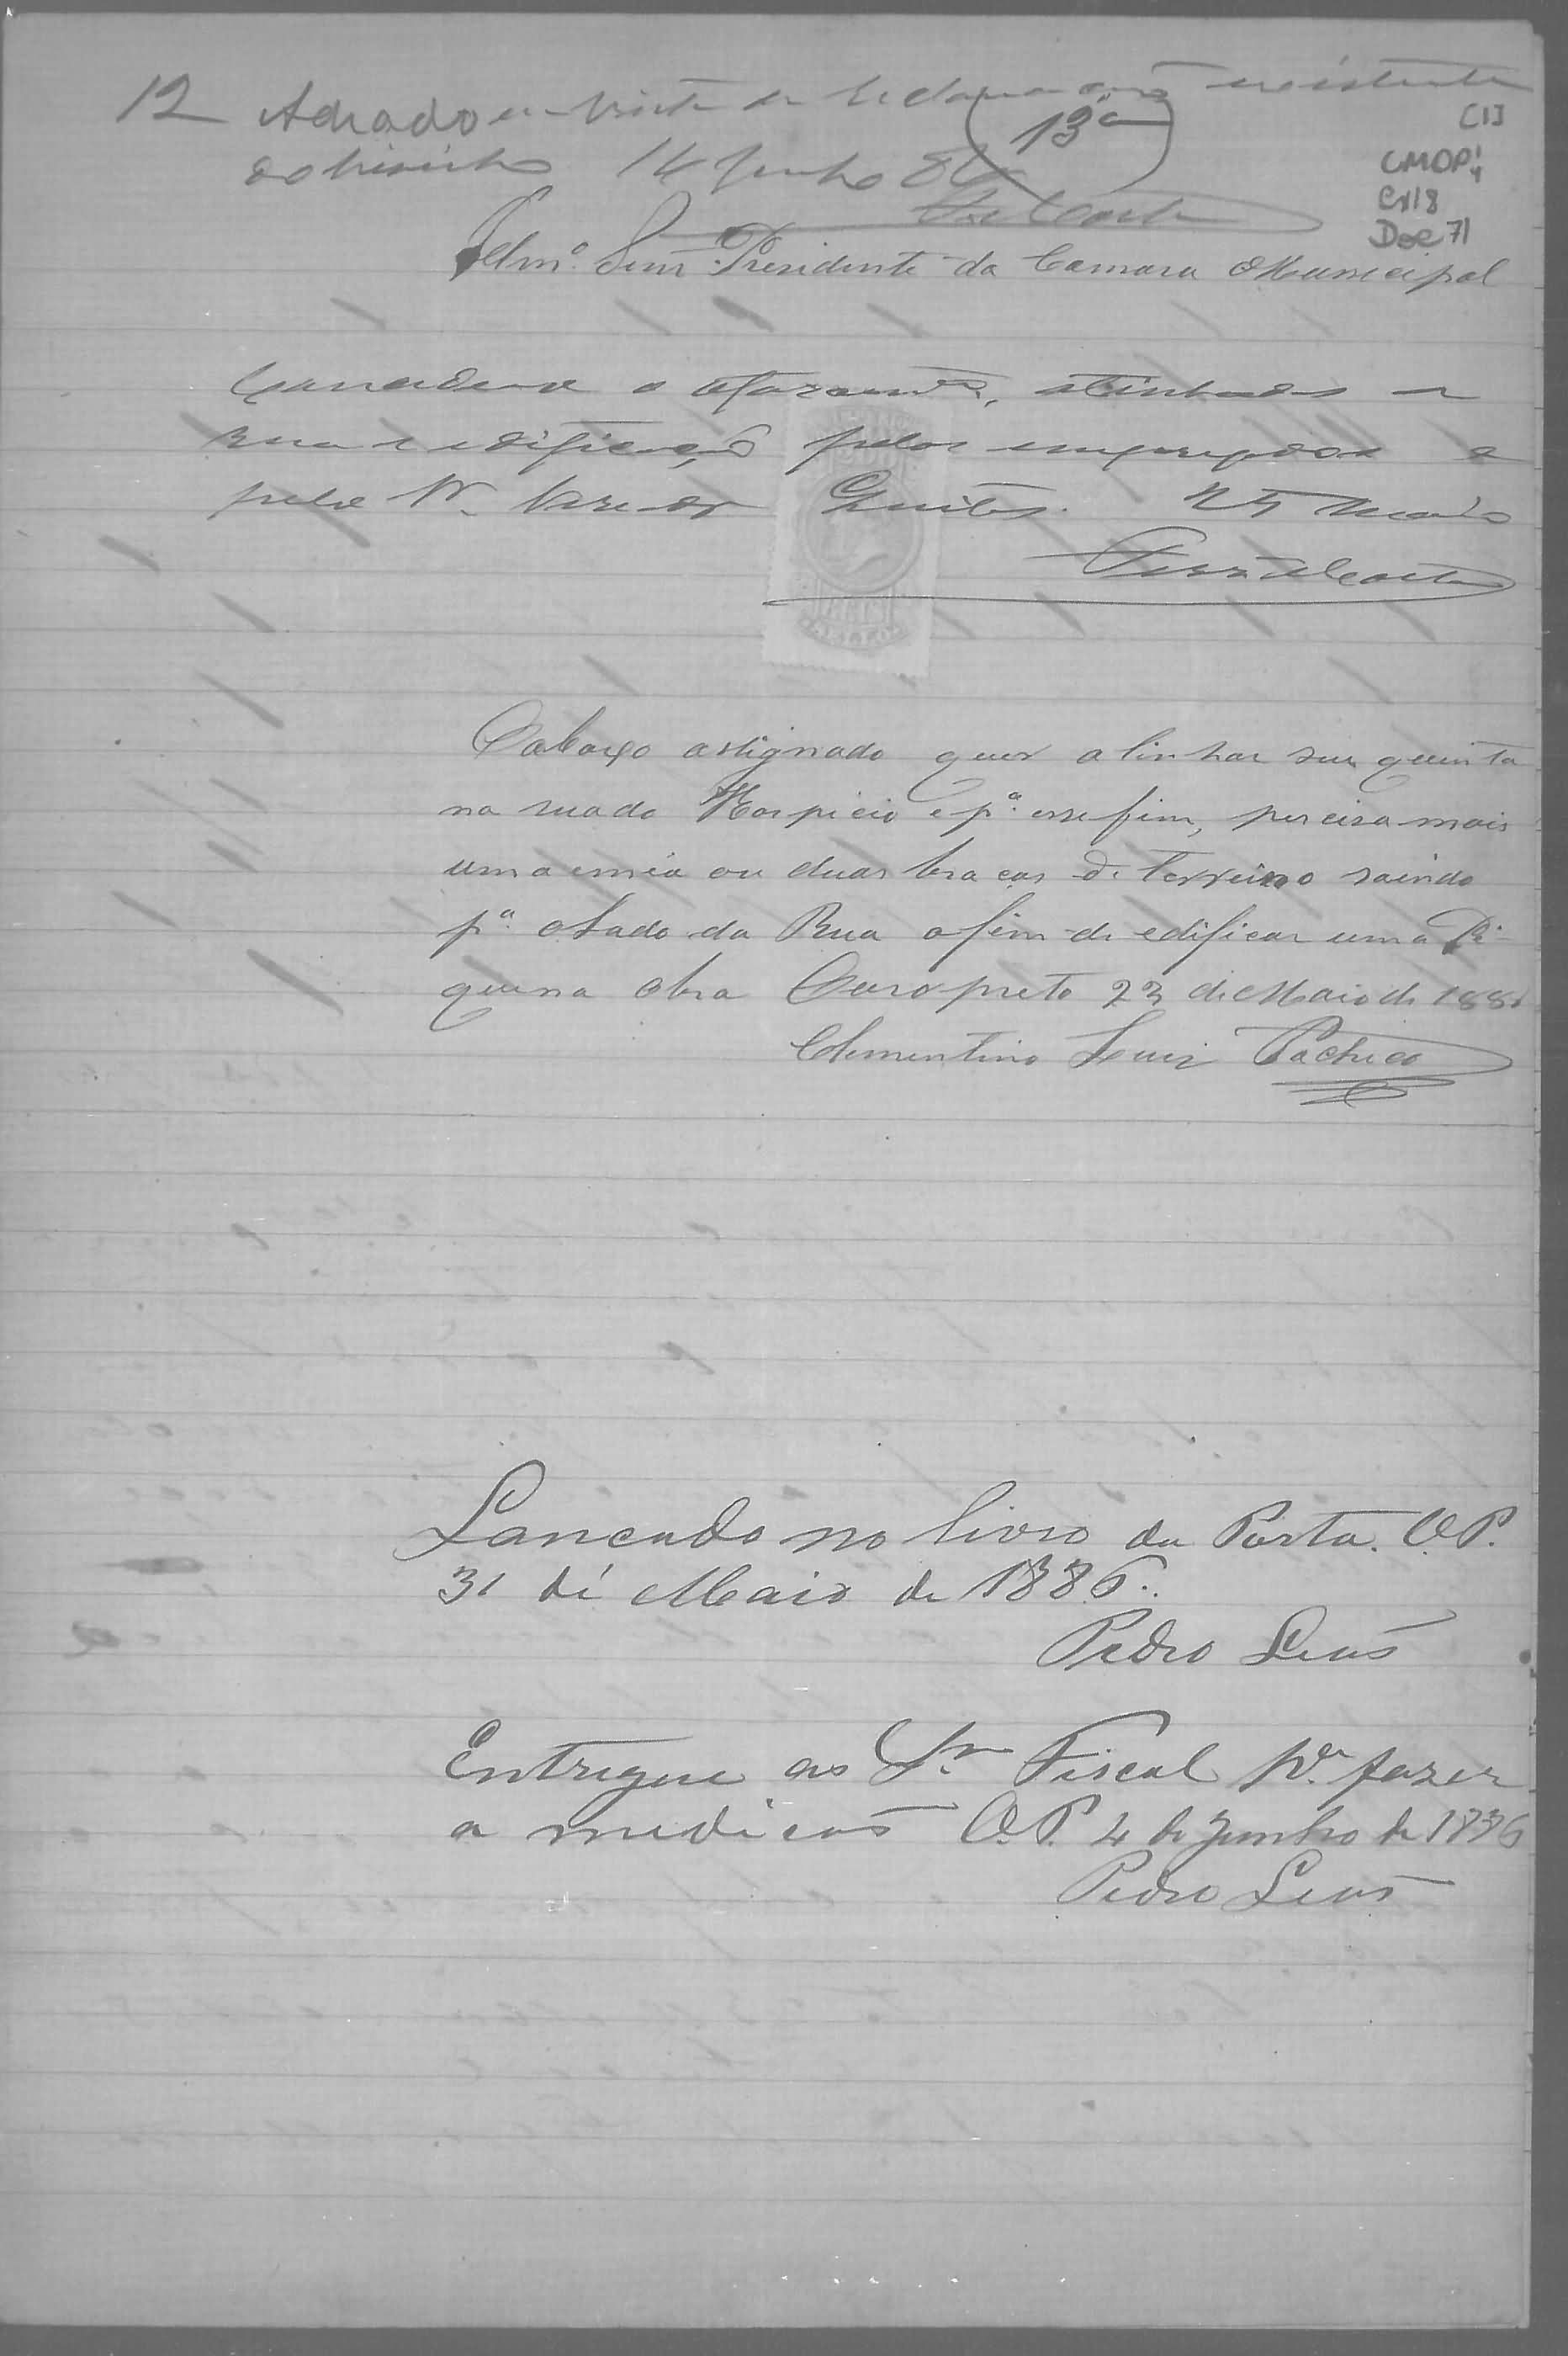 12 Adiado em vista da reclamação existente
do visinho 14 Junho 86
13ª
[1]
CMOP
Cx18
Doc 71
Illmº Senr Presidente da Camara Municipal
Concedeu o aforamto,
rua e edificação pelos empregados e
pelo Vereador 25 Maio
O abaixo assignado quer alinhar seu quintal
na rua do Hospicio e pª esse fim, percisa mais
uma e meia ou duas bracas de terreino saindo
pª o lado da Rua afim de edificar uma Pi
quena obra Ouro preto 23 de Maio de 188
Clementino Luiz Pacheco
Lancado no livro da Porta. O.P.
31 de Maio de 1886.
Pedro Leão
Entregue ao Sr. Fiscal pª fazer
a medicão O.P. 4 de Junho de 1886
Pedro Leão